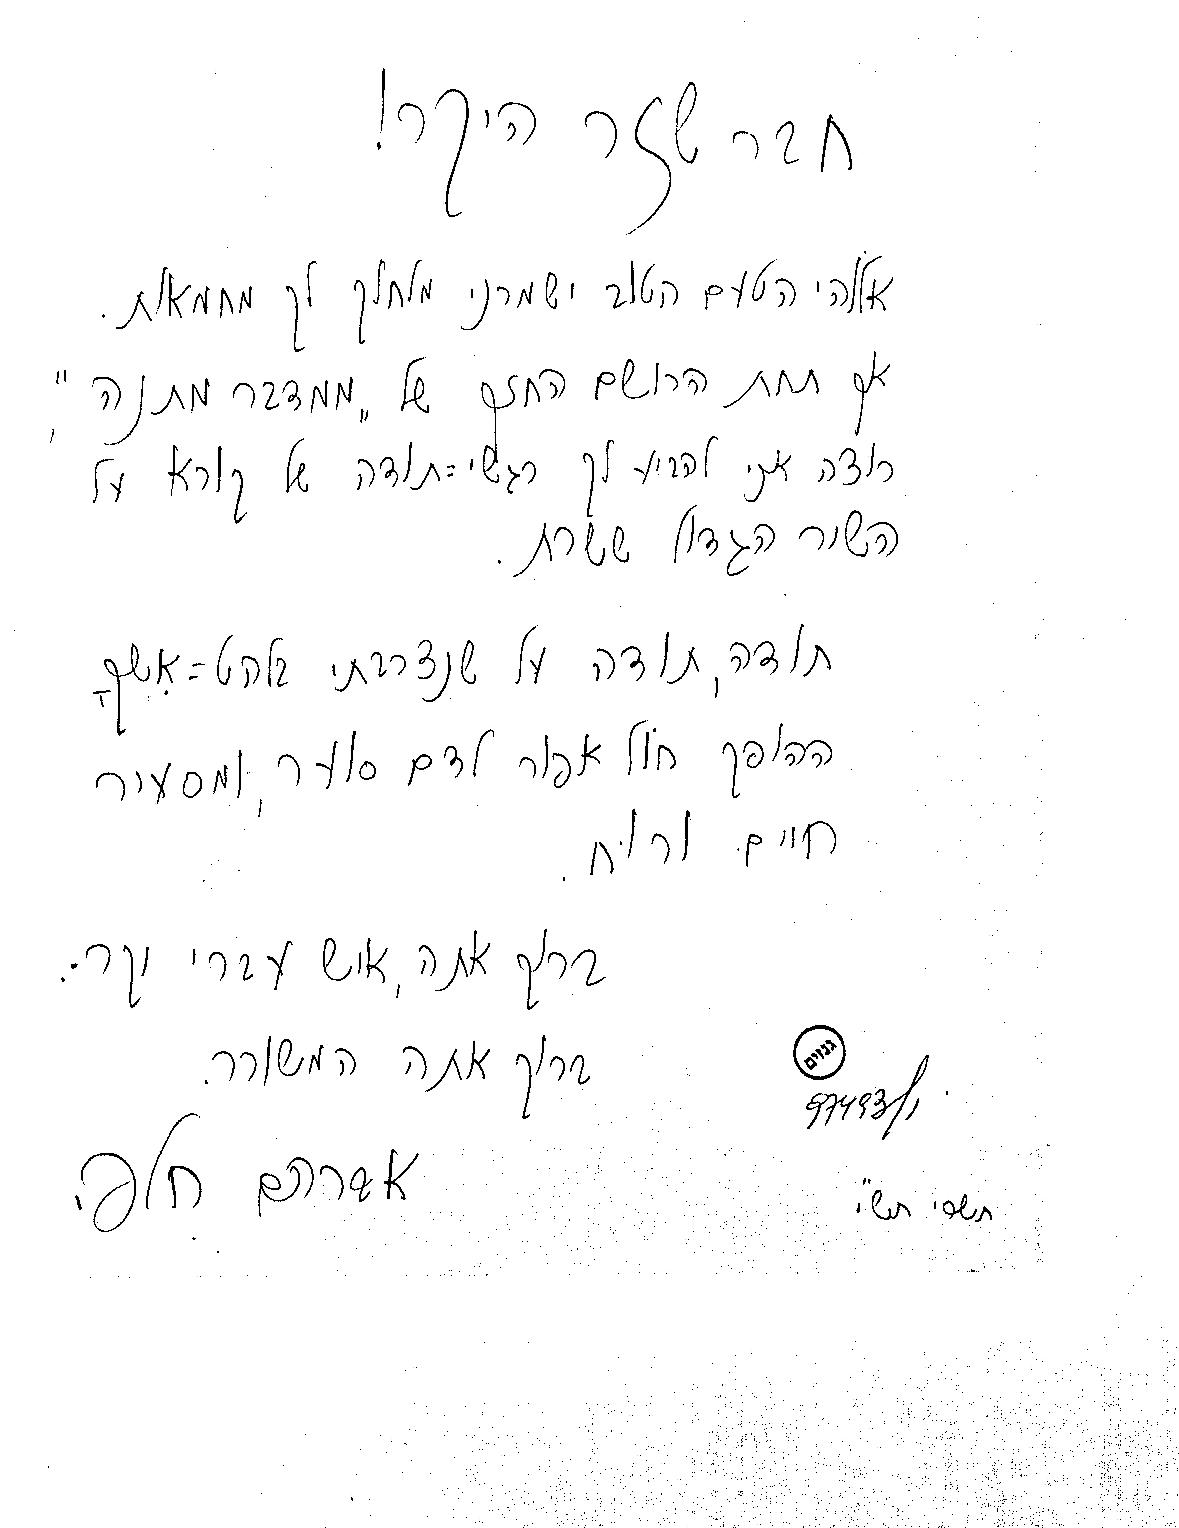 חבר שזר היקר!
אלהי הטעם הטוב ישמרני מלחלק לך מחמאות.
אך תחת הרושם החזק של „ממדבר מתנה",
רוצה אני להביע לך רגשי=תודה של קורא על
השיר הגדול ששרת.
תודה, תודה על שנצרבתי בלהט=אִשֶךָ
ההופך חול אפור לדם סוער, ומסעיר
חיים ורוח.
ברוך אתה, איש עברי יקר.
ברוך אתה המשורר.
אברהם חלפי
גנזים
97493/י
תשרי תש"י